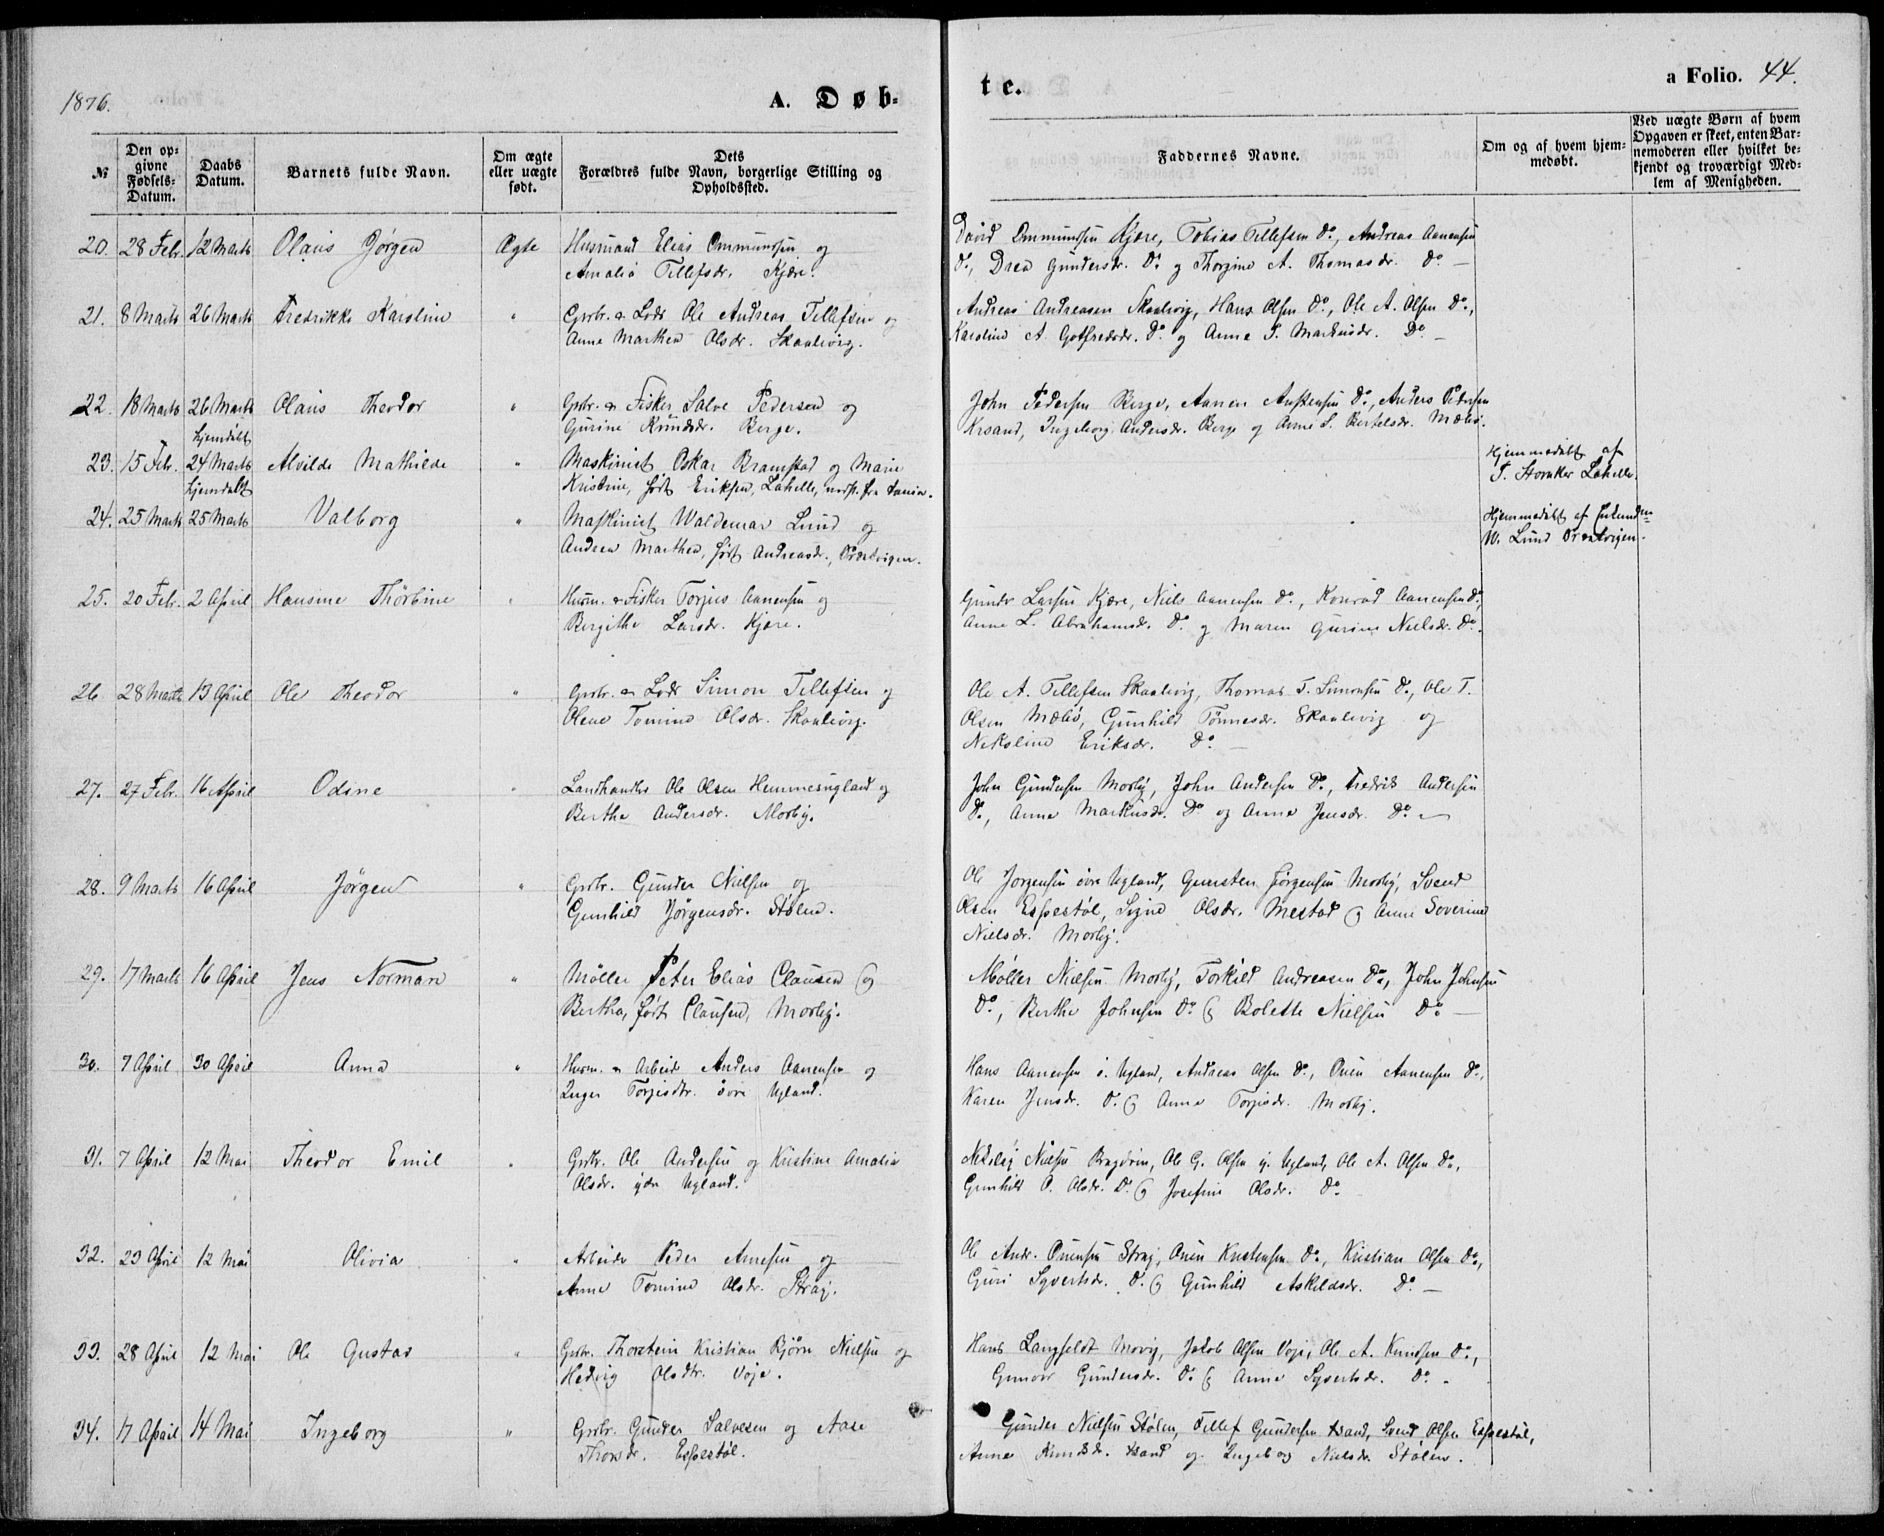 1876.
A. Døb-
te.
a Folio. 44.
№
Den op-
givne
Fødsels-
Datum.
Daabs
Datum.
Barnets fulde Navn.
Om ægte
eller uægte
født.
Dets
Forældres fulde Navn, borgerlige Stilling og
Opholdssted.
Faddernes Navne.
Om og af hvem hjem-
medøbt.
Ved uægte Børn af hvem
Opgaven er skeet, enten Bar-
nemoderen eller hvilket be-
kjendt og troværdigt Med-
lem af Menigheden.
20. 28 Febr. 12 Marts Olaus Jørgen Ægte Husmand Elias Ommundsen og
Amalia Tellefsdr. Kjære.
David Ommundsen Kjære, Tobias Tellefsen Do., Andreas Aanensen
Do., Drea Gundersdr. Do. og Thorgine A. Thomasdr. Do. —
21. 8 Marts 26 Marts Fredrikke Karoline " Grbr. & Lods Ole Andreas Tellefsen og
Anne Marthea Olsdr. Skaalevig.
Andreas Andreasen Skaalevig, Hans Olsen Do., Ole A. Olsen Do.,
Karoline A. Gotfredsdr. Do. og Anne S. Markusdr. Do. —
22. 18 Marts 26 Marts Olaus Theodor " Grbr. & Fisker Salve Pedersen og
Gurine Knudsdr. Berge.
John Pedersen Berge, Aanen Austensen Do., Anders Pedersen
Krsand, Ingeborg Andersdr. Berge og Anne S. Bertelsdr. Mæbø.
23. 15 Feb. hjemdøbt 24 Marts Alvilde Mathilde " Maskinist Oskar Bramstad og Marie
Kristine, født Eriksen, Lahelle,
Hjemmedøbt af
Lahelle.
24. 25 Marts hjemdøbt 25 Marts Valborg " Maskinist Waldemar Lund og
Andrea Marthea, født Andreasdr.,
Hjemmedøbt af
W. Lund
25. 20 Febr. 2 April Hansine Thorbine " Husm. & Fisker Torjus Aanensen og
Bergithe Larsdr. Kjære.
Gunder Larsen Kjære, Niels Aanensen Do., Konrad Aanensen Do.,
Anne L. Abrahamsdr. Do. og Maren Gurine Nielsdr. Do.
26 28 Marts 13 April Ole Theodor " Grbr. & Lods Simon Tellefsen og
Olene Tomine Olsdr. Skaalevig.
Ole A. Tellefsen Skaalevig, Thomas T. Simonsen Do., Ole T.
Olsen Mæbø, Gunhild Tønnesdr. Skaalevig og
Nikoline Eriksdr. Do. —
27. 27 Febr. 16 April Odine " Landhandler Ole Olsen Hemmesugland og
Berthe Andersdr. Mosby.
John Gundersen Mosby, John Andersen Do., Fredrik Andersen
Do., Anne Markusdr. Do. og Anne Jensdr. Do. —
28. 9 Marts 16 April Jørgen " Grbr. Gunder Nielsen og
Gunhild Jørgensdr. Stølen.
Ole Jørgensen øvre Ugland, Gunsten Jørgensen Mosby, Svend
Olsen Espestøl, Signe Olsdr. Mestad og Anne Soverine
Nielsdr. Mosby.
29. 17 Marts 16 April Jens Norman " Møller Peter Elias Clausen og
Bertha, født Clausen, Mosby.
Møller Nielsen Mosby, Torkild Andreasen Do., John Johnsen
Do., Berthe Johnsen Do. og Bolette Nielsen Do. —
30. 7 April 30 April Anna " Husm. & Arbeider Anders Aanensen og
Inger Torjusdtr. øvre Ugland.
Hans Aanensen ø. Ugland, Andreas Olsen Do., Ouen Aanensen Do.,
Karen Jensdr. Do. og Anne Torjusdr. Mosby.
31. 7 April 12 Mai Theodor Emil " Grbr. Ole Andersen og Kristine Amalie
Olsdr. ydre Ugland.
Nikolaj Nielsen Bragdøen, Ole G. Olsen y. Ugland, Ole A. Olsen Do.,
Gunhild O. Olsdr. Do. og Josefine Olsdr. Do.
32. 23 April 12 Mai Olivia " Arbeider Peder Arnesen og
Anne Tomine Olsdr. Straj.
Ole Andr. Ouensen Straj, Ouen Knutsen Do., Kristian Olsen Do.,
Guri Syvertsdr. Do. og Gunhild Askildsdr. Do. —
33. 28 April 12 Mai Ole Gustav " Grbr. Thorstein Kristian Bjørn Nielsen og
Hedvig Olsdtr. Voje.
Hans Langfeldt Movig, Jakob Olsen Voje, Ole A. Knudsen Do.,
Gunvor Gundersdr. Do. og Anne Syvertsdr. Do. .
34. 17 April 14 Mai Ingeborg " Grbr. Gunder Salvesen og Aase
Thorsdr. Espestøl.
Gunder Nielsen Stølen, Tellef Gundersen Krsand, Svend Olsen Espestøl,
Anne Knudsdr. Krsand og Ingeborg Nielsdr. Stølen.